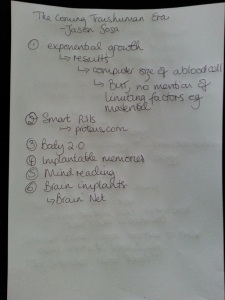 The Coming Transhuman Era
- Jason Sosa
① exponential growth
↳ results
↳ computer size of a bloodcell
↳ But, no mention of
limiting factors eg
material
② Smart Pills
↳ proteus.com
③ Body 2.0
④ Implantable memories
⑤ Mind reading
⑥ Brain implants
↳ Brain Net